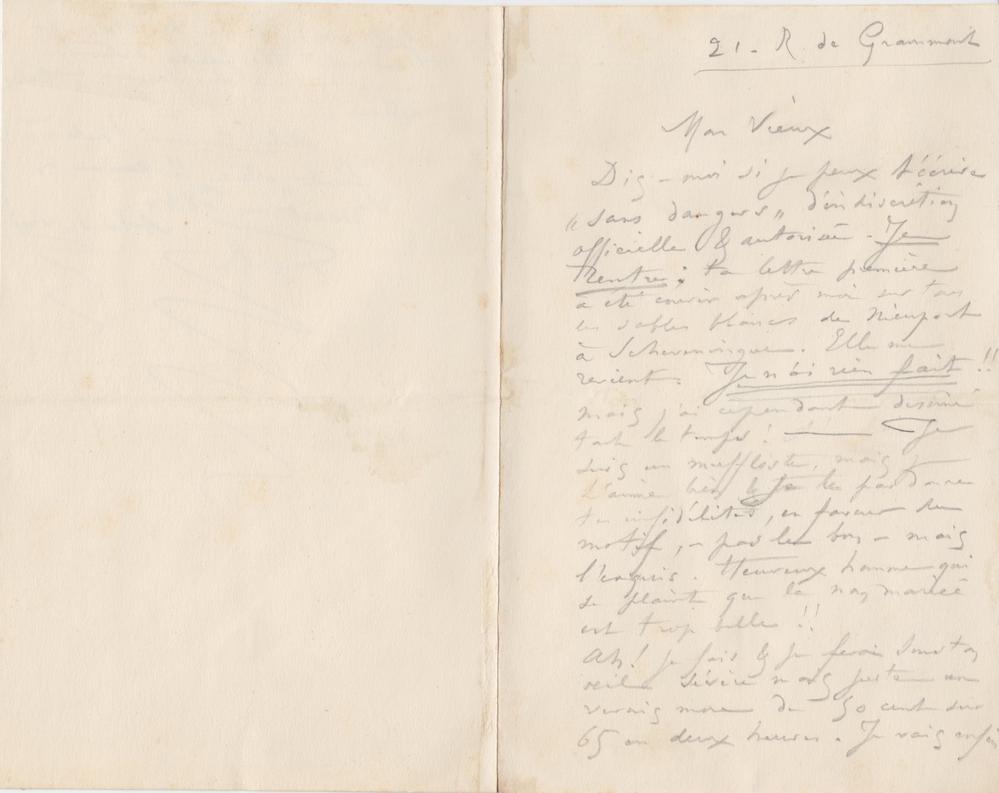 21. R. de Grammont
Mon Vieux
Dis-moi si je peux t'écrire
"sans dangers" d'indiscrétion
officielle & autorisée. Je
Rentre; ta lettre première
a été courir après moi sur tous
les sables blancs de Nieuport
à Scheveningue. Elle me
revient. Je n'ai rien fait!!
mais j'ai cependant dessiné
tout le temps! — Je
suis un muffliste, mais je
t'aime bien & je te pardonne
tes infidélités, en faveur du
motif, - pas le bon - mais
l'exquis. Heureux homme qui
se plaint que la mariée
est trop belle!!
Ah! je fais & je ferai sous ton
œil sévère mais juste un
vernis mou de 50 cent sur
65 en deux heures. Je vais enfin